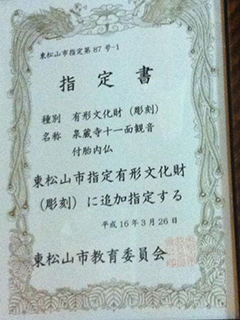 東松山市指定第87号-1
指定書
種別 有形文化財（彫刻）
名称 泉蔵寺十一面観音
付胎内仏
東松山市指定有形文化財
（彫刻）に追加指定する
平成16年3月26日
東松山市教育委員会